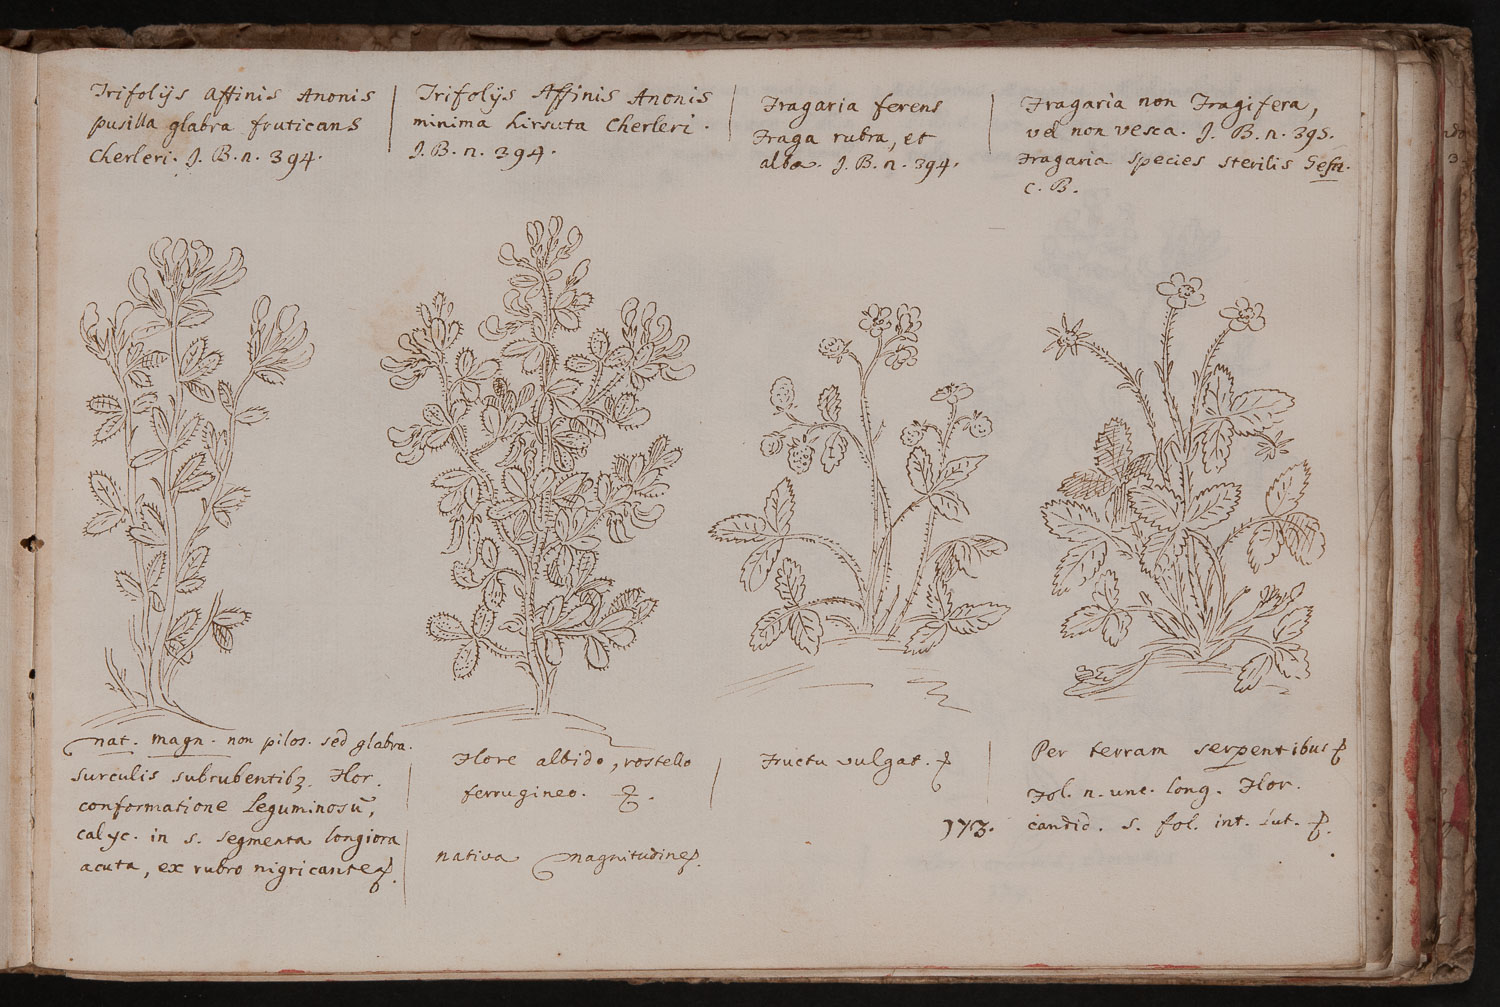 Trifolijs affinis Anonis
pusilla glabra fruticans
Cherleri. J. B. n. 394.
Trifolijs Affinis Anonis
minima hirsuta Cherleri.
J. B. n. 394.
Fragaria ferens
Fraga rubra, et
alba. J. B. n. 394.
Fragaria non Fragifera,
vel non vesca. J. B. n. 395.
Fragaria species sterilis Gesn.
C. B.
nat. magn. non pilos. sed glabra.
surculis subrubentibꝫ. Flor.
conformatione Leguminosū,
calyc. in 5. segmenta longiora
acuta, ex rubro nigricante
Flore albido, rostello
ferrugineo.
nativa magnitudine
Fructu vulgat.
173.
Per terram serpentibus
Fol. n. unc. long. Flor.
candid. 5. fol. int. Lut.